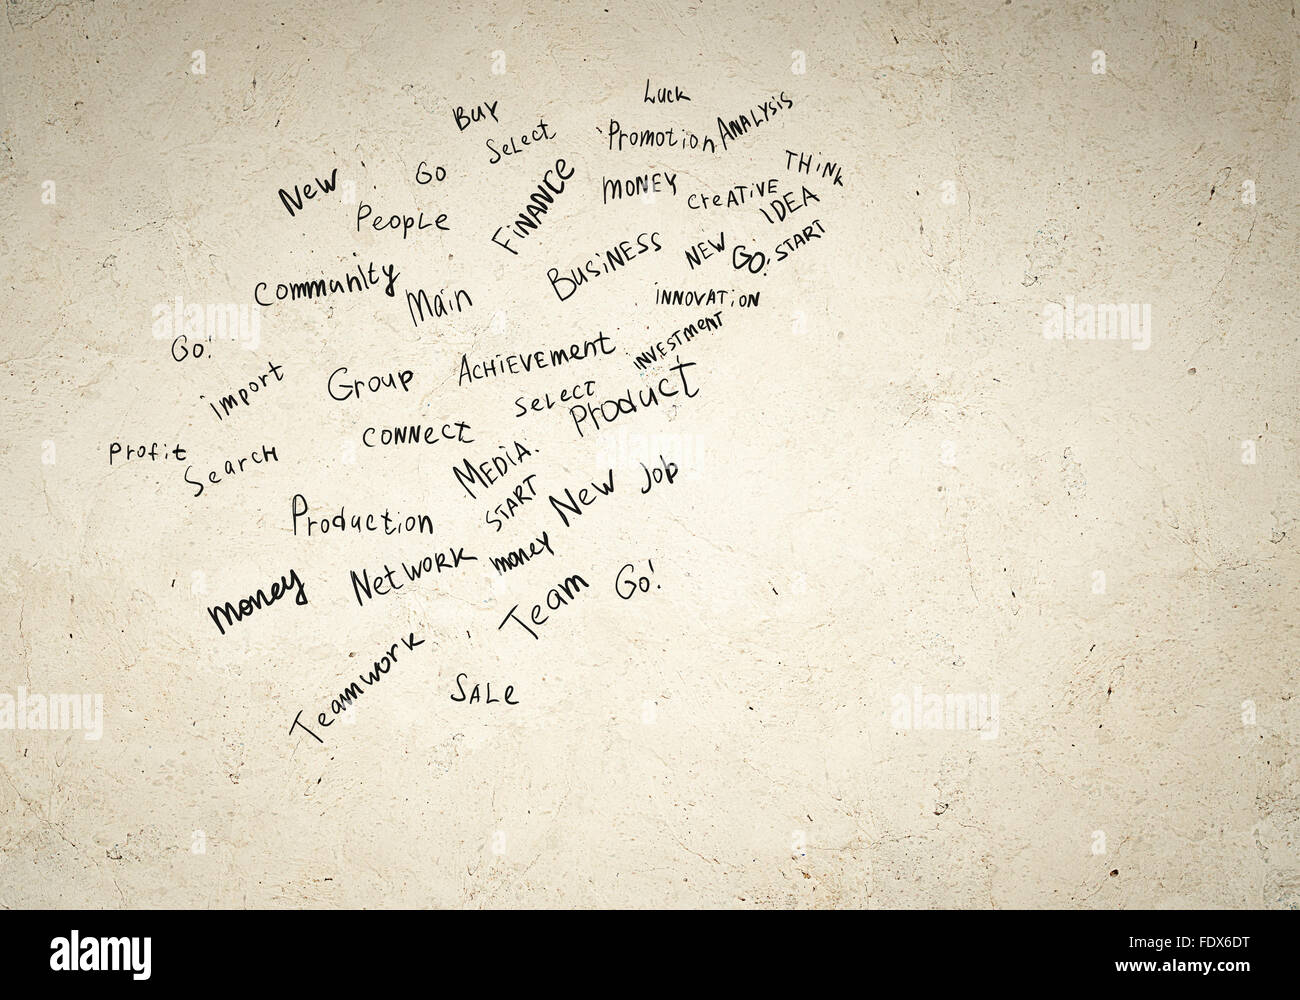 Luck
Buy
Analysis
Select
Promotion
Think
New
Go
Finance
Money
Creative
Idea
People
Business
New
Go!
Start
Community
Main
Innovation
Go!
Investment
Import
Group
Achievement
Select
Product
Profit
Search
Connect
Media.
Start
New Job
Production
Network
money
Money
Team
Go!
Teamwork
Sale
alamy
Image ID: FDX6DT
www.alamy.com